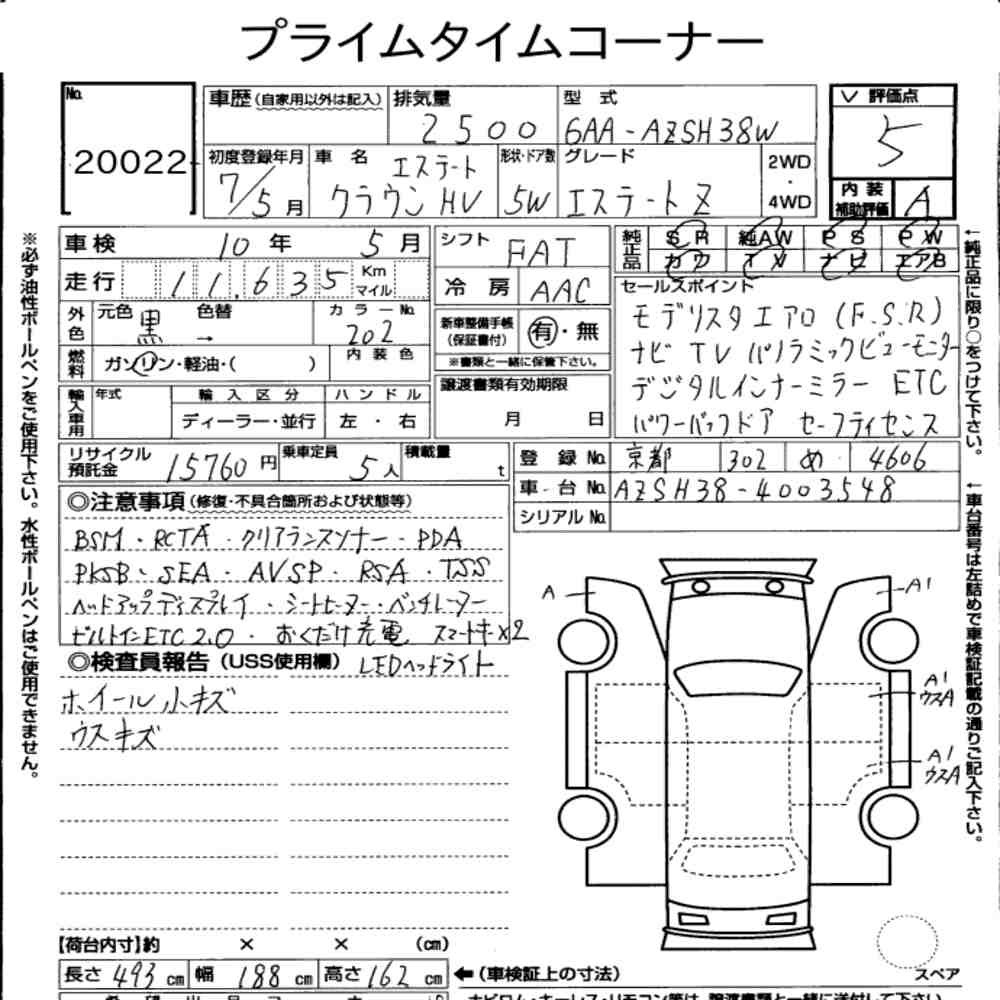 プライムタイムコーナー
No. 20022
車歴 (自家用以外は記入)
排気量 2500
型式 6AA-AZSH38W
評価点 5
初度登録年月 7/5月
車名 エステート クラウン HV
形状・ドア数 5W
グレード エステート Z
2WD・4WD
内装補助評価 A
車検 10年 5月
シフト FAT
純正品 SR 純AW PS PW
カワ TV ナビ エアB
走行 11,635 Km マイル
冷房 AAC
セールスポイント
モデリスタエアロ (F.S.R)
ナビ TV パノラミックビューモニター
デジタルインナーミラー ETC
パワーバックドア セーフティセンス
外色 元色 黒 → 色替
カラーNo. 202
新車整備手帳 (保証書付) 有・無
※書類と一緒に保管下さい。
燃料 ガソリン・軽油・( )
内装色
譲渡書類有効期限
月 日
輸入車用 年式 輸入区分 ハンドル
ディーラー・並行 左・右
リサイクル預託金 15760円
乗車定員 5人
積載量 t
登録No. 京都 302 め 4606
車台No. AZSH38-4003548
シリアルNo.
◎注意事項 (修復・不具合箇所および状態等)
BSM・RCTA・クリアランスソナー・PDA
PKSB・SEA・AVSP・RSA・TSS
ヘッドアップディスプレイ・シートヒーター・ベンチレーター
ビルトインETC2.0・おくだけ充電 スマートキー×2
LEDヘッドライト
◎検査員報告 (USS使用欄)
ホイール小キズ
ウスキズ
A
A1
A1
ウスA
A1
ウスA
スペア
【荷台内寸】約 × × (cm)
長さ 493 cm 幅 188 cm 高さ 162 cm
←(車検証上の寸法)
※必ず油性ボールペンをご使用下さい。水性ボールペンはご使用できません。
←純正品に限り○をつけて下さい。
←車台番号は左詰めで車検証記載の通りご記入下さい。